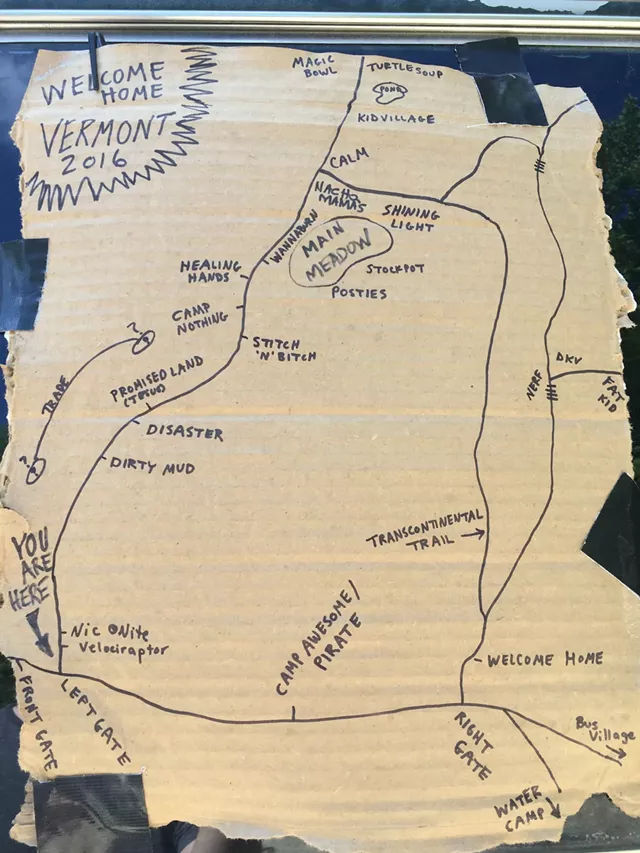 WELCOME
HOME
VERMONT
2016
MAGIC
BOWL
TURTLESOUP
POND
KIDVILLAGE
CALM
NACHO
MAMAS
SHINING
LIGHT
WANNABURN
MAIN
MEADOW
STOCKPOT
POSTIES
HEALING
HANDS
CAMP
NOTHING
STITCH
'N' BITCH
?
TRADE
?
PROMISED LAND
(JESUS)
DISASTER
DIRTY MUD
DKV
NERF
FAT
KID
TRANSCONTINENTAL
TRAIL →
YOU
ARE
HERE
Nic @ Nite
Velociraptor
CAMP AWESOME/
PIRATE
WELCOME HOME
FRONT GATE
LEFT GATE
RIGHT
GATE
Bus
Village
WATER
CAMP